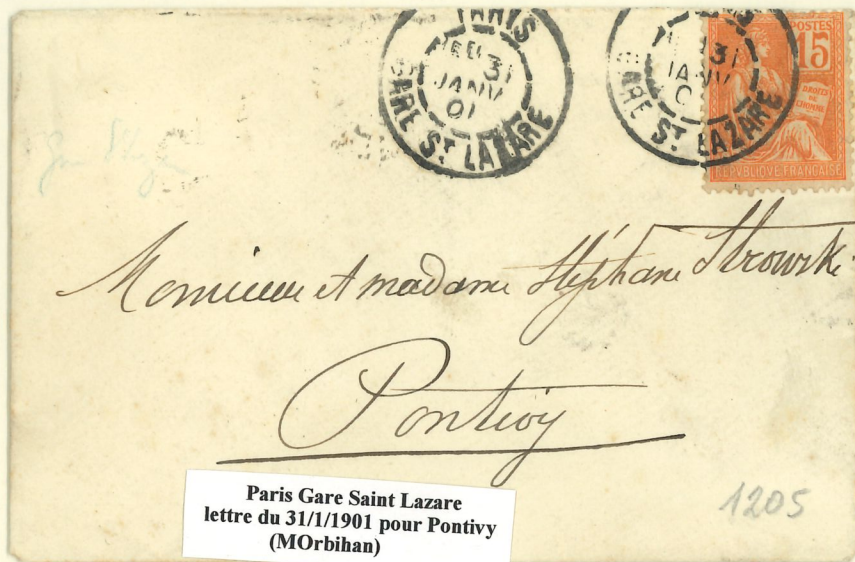 PARIS
31
JANV
01
GARE ST LAZARE
PARIS
31
JANV
0
GARE ST LAZARE
POSTES
15
DROITS
DE
L'HOMME
REPVBLIQVE FRANÇAISE
Monsieur et madame Stéphane Strowski
Pontivy
Paris Gare Saint Lazare
lettre du 31/1/1901 pour Pontivy
(MOrbihan)
1205